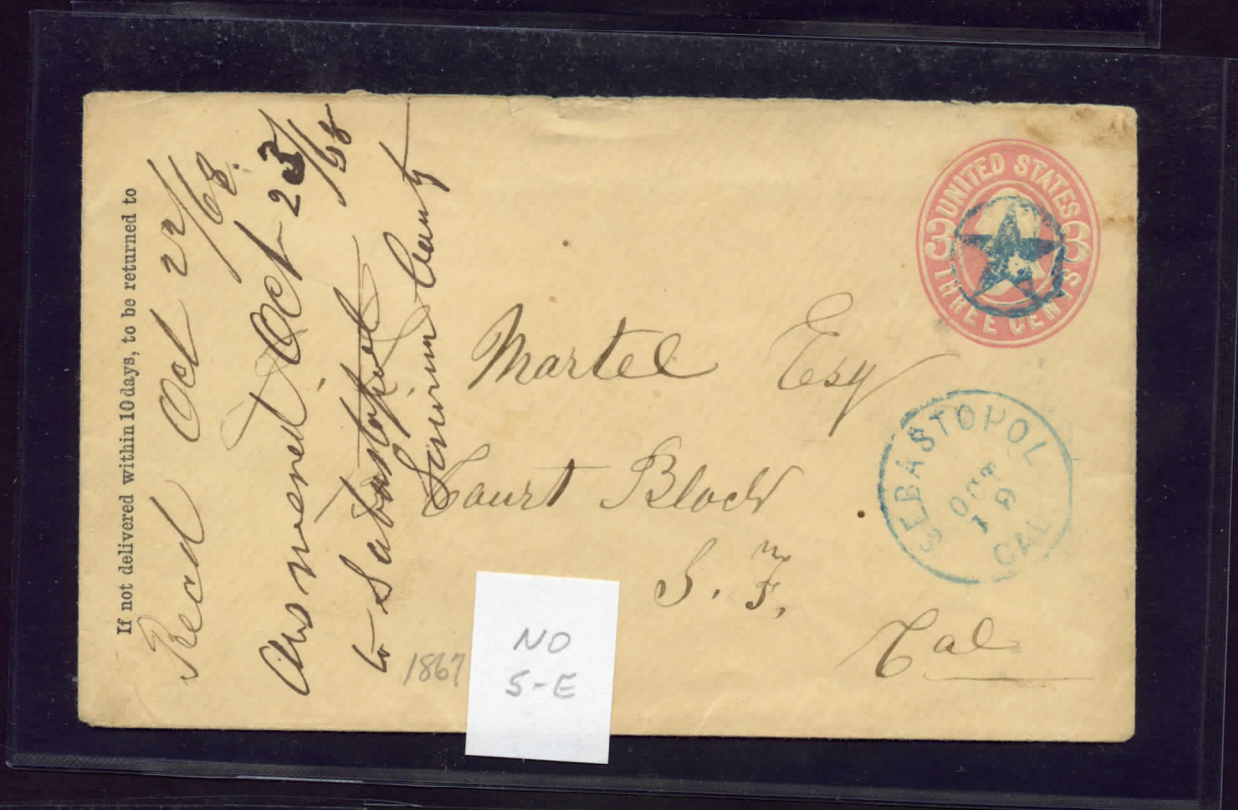 If not delivered within 10 days, to be returned to
Recd Oct 22/68.
Answered Oct 23/68
to Sabastopol
Sonoma County
UNITED STATES
3 3
THREE CENTS
Martel Esq
Court Block
S. F.
Cal
SEBASTOPOL
OCT
19
CAL.
1867
NO
S-E